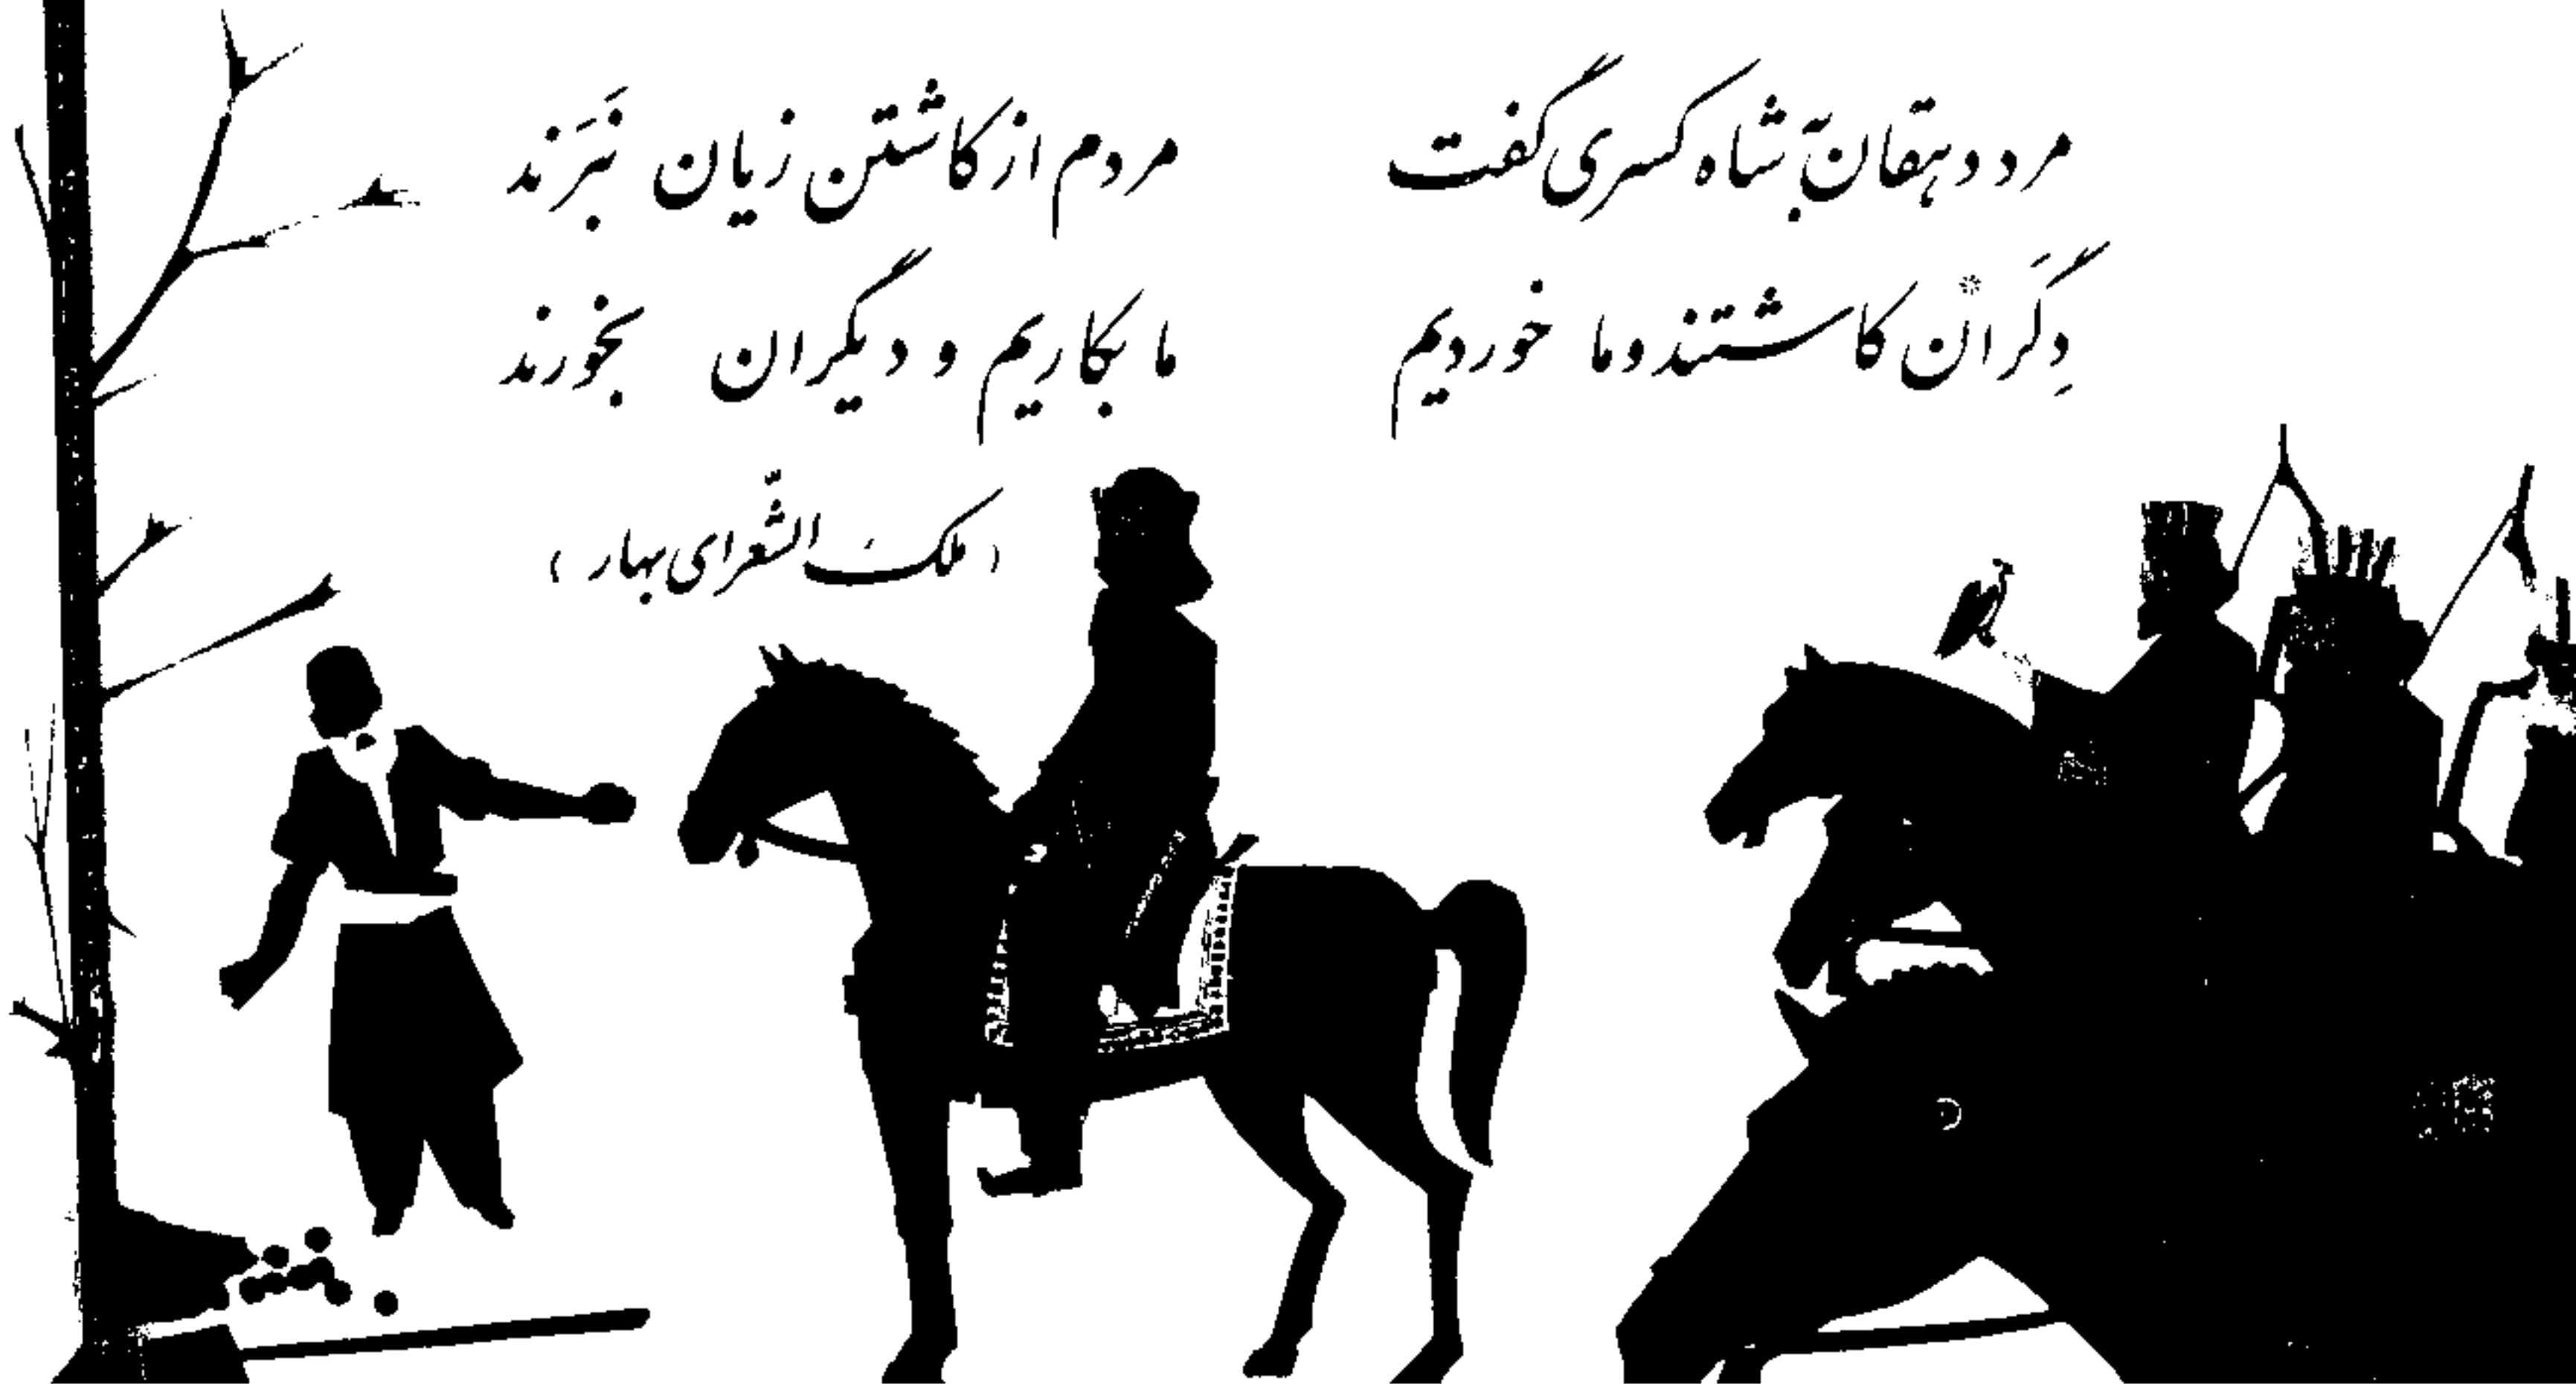 مرد دهقان به شاه کسری گفت مردم از کاشتن زیان نبَرَند
دِگَران* کاشتند و ما خوردیم ما بکاریم و دیگران بخورند
(ملک الشّعرای بهار)